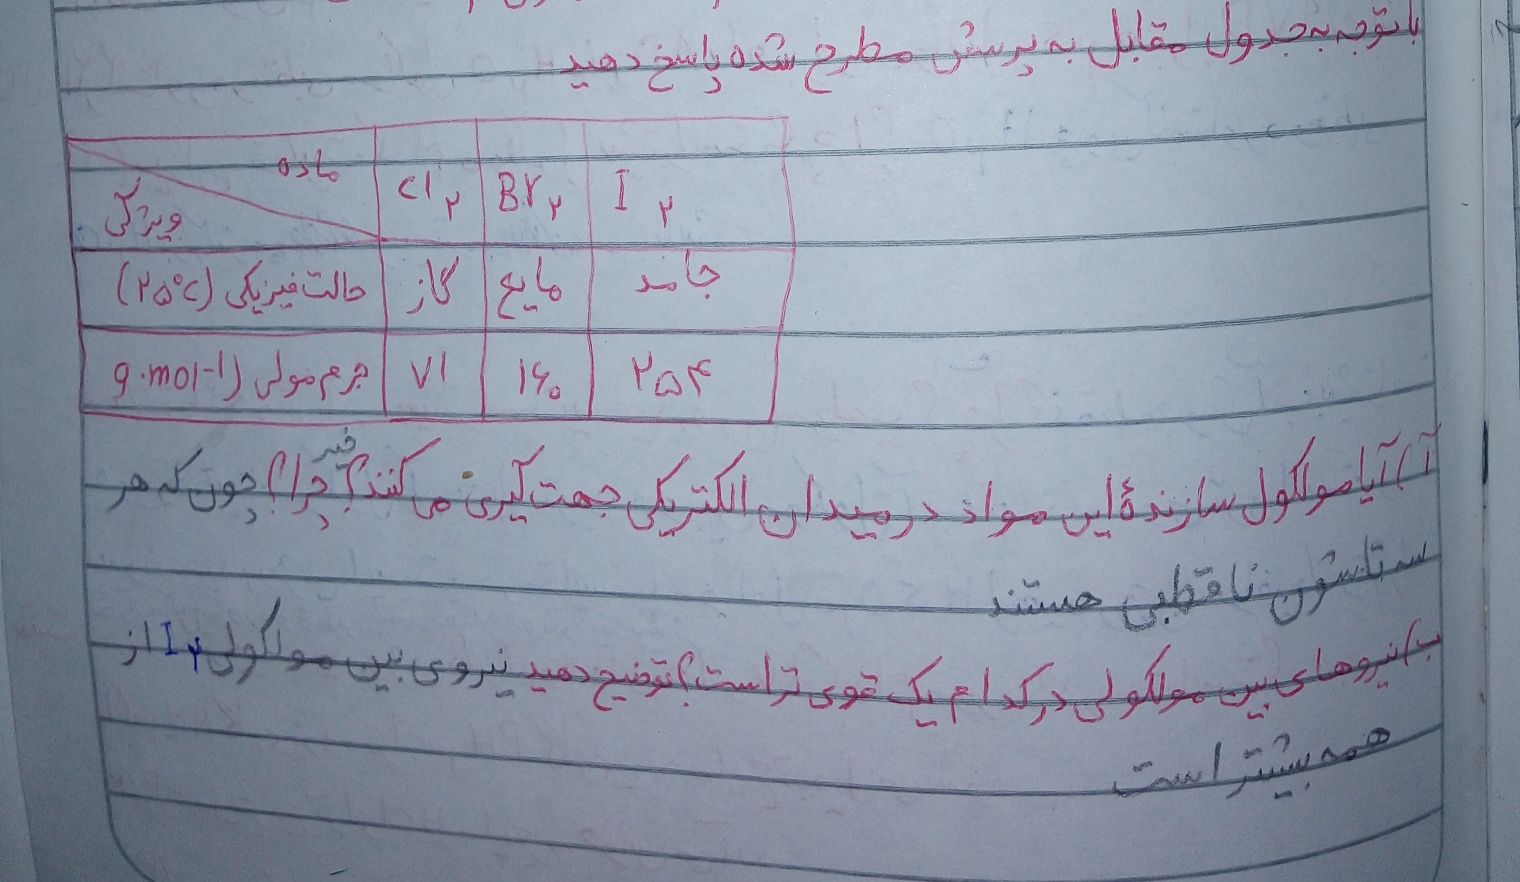 با توجه به جدول مقابل به پرسش مطرح شده پاسخ دهید
ماده Cl۲ Br۲ I۲
ویژگی
حالت فیزیکی (۲۵°c) گاز مایع جامد
جرم مولی (g.mol-1 ۷۱ ۱۶۰ ۲۵۴
آ) آیا مولکول سازندهٔ این مواد در میدان الکتریکی جهت گیری می کنند؟ خیر چرا؟ چون که هر
سه تاشون ناقطبی هستند
ب) نیروهای بین مولکولی در کدام یک قوی تر است؟ توضیح دهید نیروی بین مولکولی I۲ از
همه بیشتر است